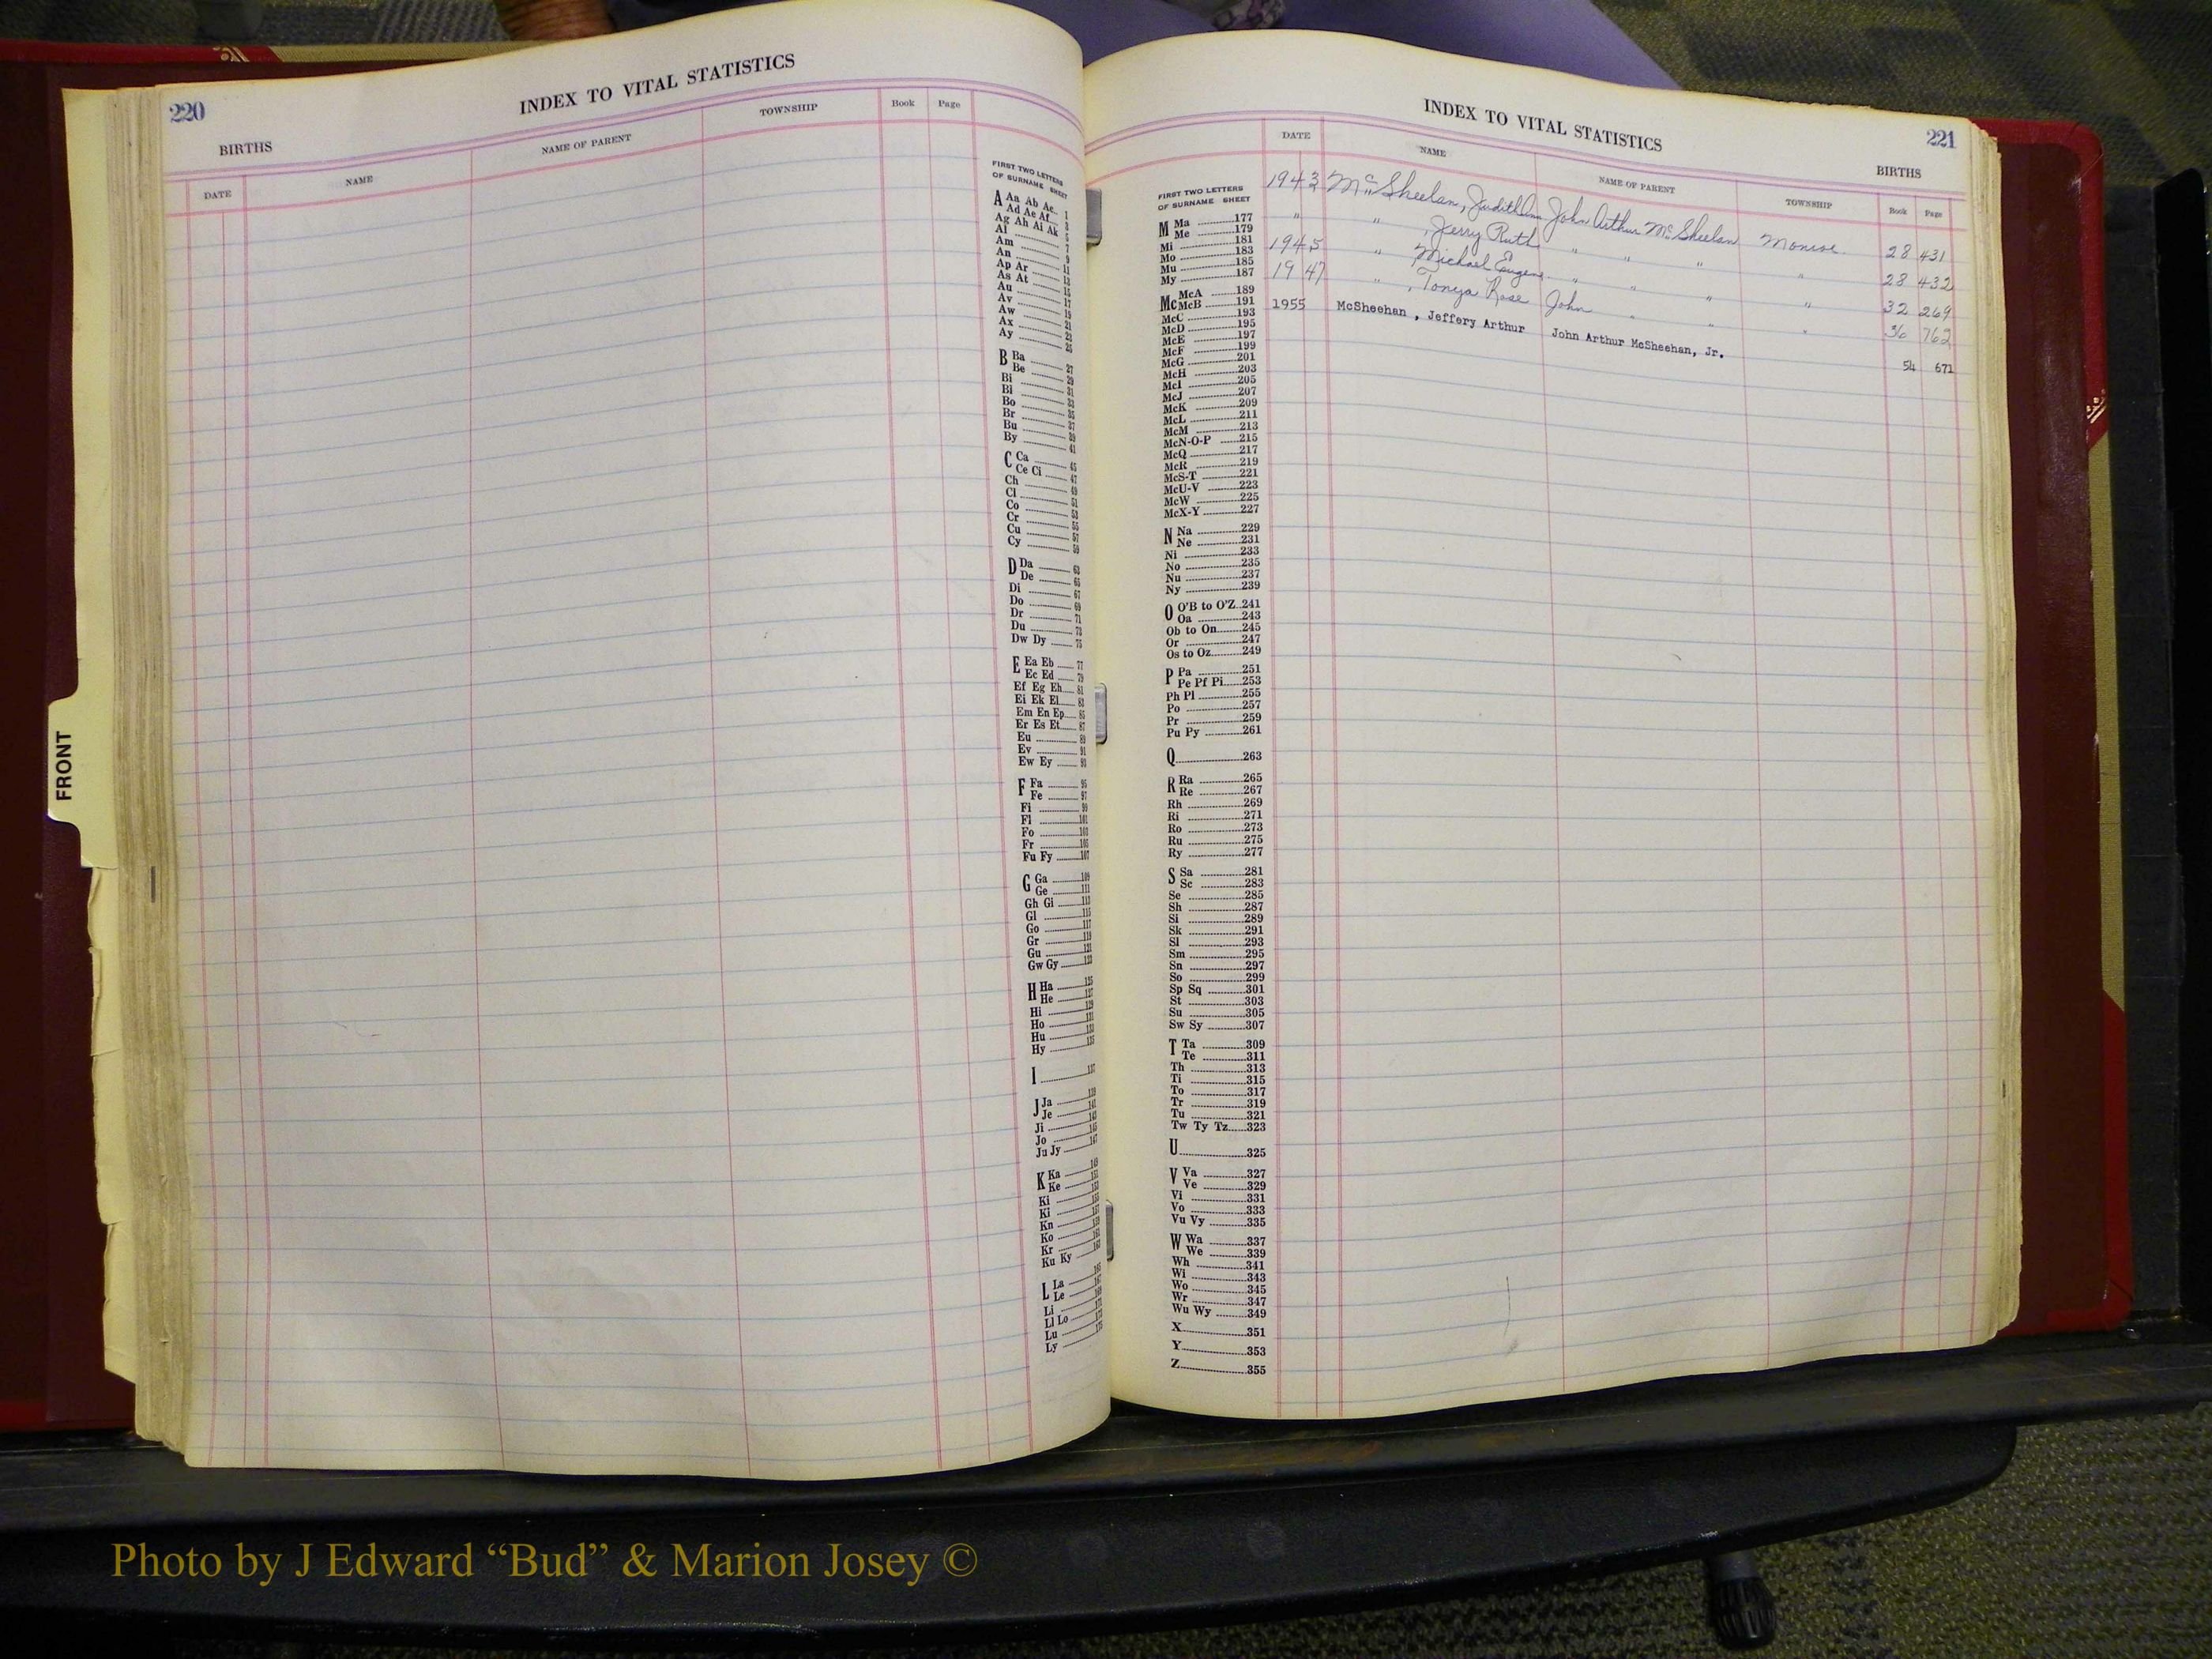 220
INDEX TO VITAL STATISTICS
BIRTHS
DATE NAME NAME OF PARENT TOWNSHIP Book Page
FIRST TWO LETTERS
OF SURNAME SHEET
A Aa Ab Ac 1
Ad Ae Af 3
Ag Ah Ai Ak 5
Al 7
Am 9
An 11
Ap Ar 13
As At 15
Au 17
Av 19
Aw 21
Ax 23
Ay 25
B Ba 27
Be 29
Bi 31
Bl 33
Bo 35
Br 37
Bu 39
By 41
C Ca 45
Ce Ci 47
Ch 49
Cl 51
Co 53
Cr 55
Cu 57
Cy 59
D Da 63
De 65
Di 67
Do 69
Dr 71
Du 73
Dw Dy 75
E Ea Eb 77
Ec Ed 79
Ef Eg Eh 81
Ei Ek El 83
Em En Ep 85
Er Es Et 87
Eu 89
Ev 91
Ew Ey 93
F Fa 95
Fe 97
Fi 99
Fl 101
Fo 103
Fr 105
Fu Fy 107
G Ga 109
Ge 111
Gh Gi 113
Gl 115
Go 117
Gr 119
Gu 121
Gw Gy 123
H Ha
He
Hi
Ho
Hu
Hy
I
J Ja
Je
Ji
Jo
Ju Jy
K Ka
Ke
Ki
Kn
Ko
Kr
Ku Ky
L La
Le
Li
Ll Lo
Lu
Ly
FRONT
INDEX TO VITAL STATISTICS
221
BIRTHS
DATE NAME NAME OF PARENT TOWNSHIP Book Page
1943 McSheelan, Judith Ann John Arthur McSheelan Monroe 28 431
" " , Jerry Ruth " " " " 28 432
1945 " Michael Eugene " " " " 32 269
1947 " , Tonya Rose John " " " 36 762
1955 McSheehan , Jeffery Arthur John Arthur McSheehan, Jr. 54 671
FIRST TWO LETTERS
OF SURNAME SHEET
M Ma 177
Me 179
Mi 181
Mo 183
Mu 185
My 187
Mc McA 189
McB 191
McC 193
McD 195
McE 197
McF 199
McG 201
McH 203
McI 205
McJ 207
McK 209
McL 211
McM 213
McN-O-P 215
McQ 217
McR 219
McS-T 221
McU-V 223
McW 225
McX-Y 227
N Na 229
Ne 231
Ni 233
No 235
Nu 237
Ny 239
O O'B to O'Z 241
Oa 243
Ob to On 245
Or 247
Os to Oz 249
P Pa 251
Pe Pf Pi 253
Ph Pl 255
Po 257
Pr 259
Pu Py 261
Q 263
R Ra 265
Re 267
Rh 269
Ri 271
Ro 273
Ru 275
Ry 277
S Sa 281
Sc 283
Se 285
Sh 287
Si 289
Sk 291
Sl 293
Sm 295
Sn 297
So 299
Sp Sq 301
St 303
Su 305
Sw Sy 307
T Ta 309
Te 311
Th 313
Ti 315
To 317
Tr 319
Tu 321
Tw Ty Tz 323
U 325
V Va 327
Ve 329
Vi 331
Vo 333
Vu Vy 335
W Wa 337
We 339
Wh 341
Wi 343
Wo 345
Wr 347
Wu Wy 349
X 351
Y 353
Z 355
Photo by J Edward “Bud” & Marion Josey ©